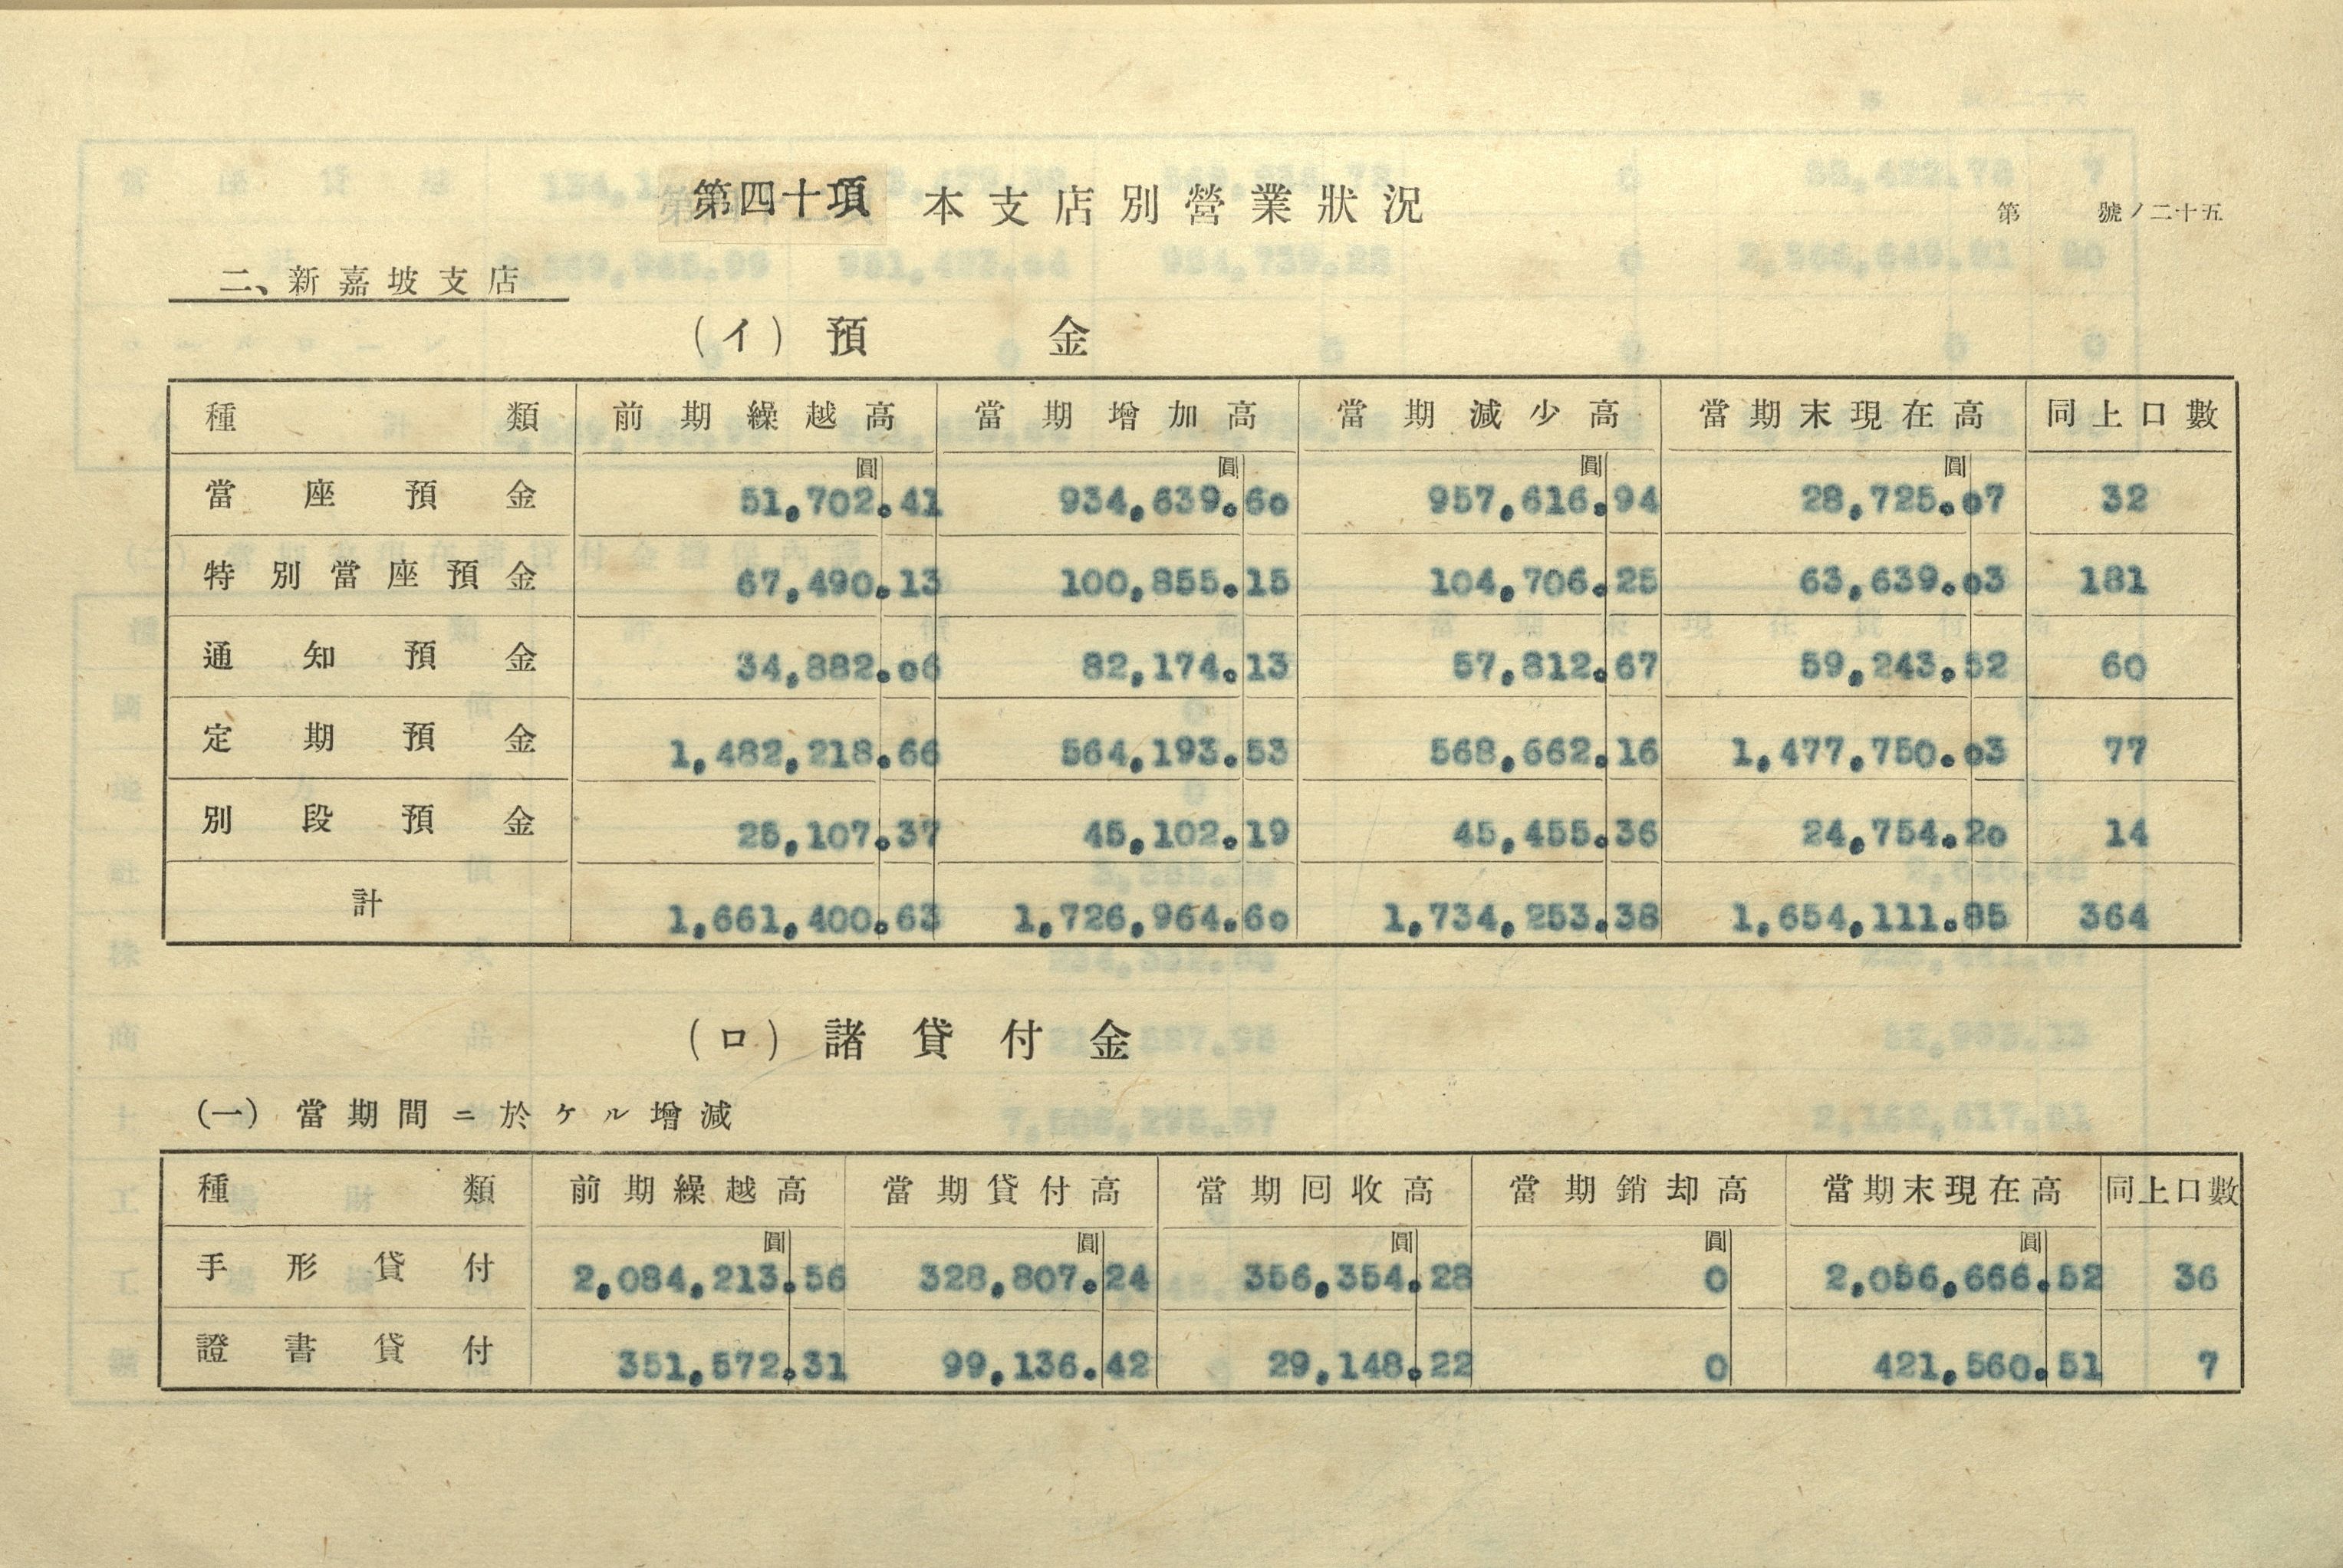 第四十項 本支店別營業狀況 第 號ノ二十五
二、新嘉坡支店
(イ) 預金
種類 前期繰越高 當期增加高 當期減少高 當期末現在高 同上口數
圓 圓 圓 圓
當座預金 51,702.41 934,639.60 957,616.94 28,725.07 32
特別當座預金 67,490.13 100,855.15 104,706.25 63,639.03 181
通知預金 34,882.06 82,174.13 57,812.67 59,243.52 60
定期預金 1,482,218.66 564,193.53 568,662.16 1,477,750.03 77
別段預金 25,107.37 45,102.19 45,455.36 24,754.20 14
計 1,661,400.63 1,726,964.60 1,734,253.38 1,654,111.85 364
(ロ) 諸貸付金
(一) 當期間ニ於ケル增減
種類 前期繰越高 當期貸付高 當期回收高 當期銷却高 當期末現在高 同上口數
圓 圓 圓 圓 圓
手形貸付 2,084,213.56 328,807.24 356,354.28 0 2,056,666.52 36
證書貸付 351,572.31 99,136.42 29,148.22 0 421,560.51 7